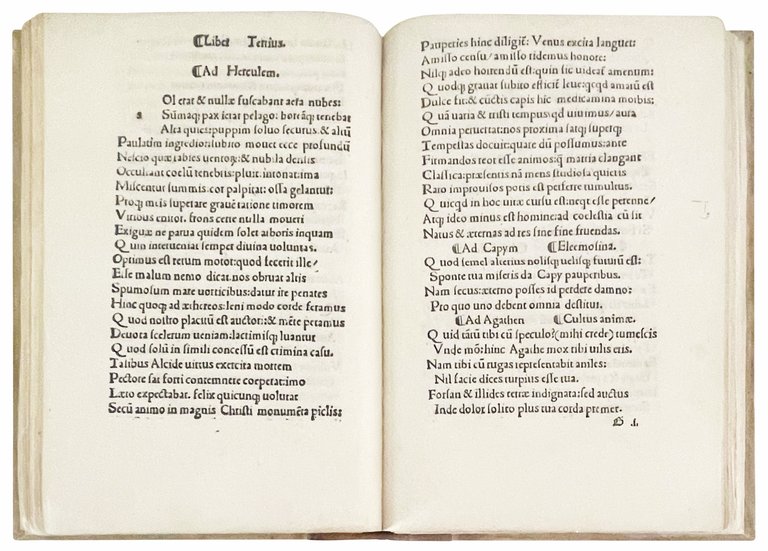 ¶Liber Tertius.
¶Ad Herculem.
Ol erat & nullæ fuscabant aera nubes:
s Sūmaq; pax ierat pelago: horāq; tenebar
Alta quies: puppim soluo securus: & altū
Paulatim ingredior: subito mouet ecce profundū
Nescio quæ rabies uentorꝝ: & nubila densis
Occultant coelum tenebris: pluit: intonat: ima
Miscentur summis. cor palpitat: ossa gelantur:
Proq; meis superare grauē ratione timorem
Viribus enitor. frons certe nulla moueri
Exiguæ ne parua quidem solet arboris inquam
Quin interueniat semper diuina voluntas.
Optimus est rerum motor: quod fecerit ille/
Esse malum nemo dicat. nos obruat altis
Spumosum mare uorticibus: datur ire penates
Hinc quoq; ad æthereos: leni modo corde feramus
Quod nostro placitū est auctori: & mēte petamus
Deuota scelerum ueniam: lacrimisq; luantur
Quod solū in simili concessū est crimina casu.
Talibus Alcide uirtus exercita mortem
Pectore sat forti contemnere coeperat: imo
Læto expectabat. felix quicunq; uolutat
Secū animo in magnis Christi monumēta piclis:
Pauperies hinc diligit̄: Venus excita languet:
Amisso censu/amisso ridemus honore:
Nilq; adeo horrendū est: quin sic uideat̄ amenum:
Quodq; grauat subito efficit̄ leue: qeqd amarū est
Dulce fit: & cūctis capis hic medicamina morbis:
Quā uaria & tristi tempus: qd uiuimus/aura
Omnia peruertat: nos proxima satq; superq;
Tempestas docuit: quare dū possumus: ante
Firmandos reor esse animos: q̄ martia clangant
Classica: præsentis nā mens studiosa quietis
Raro improuisos potis est perferre tumultus.
Quicqd in hoc uitæ cursu est: neqt esse perenne/
Atq; ideo minus est homine: ad coelestia cū sit
Natus & æternas ad res sine fine fruendas.
¶Ad Capym ¶Eleemosina.
Quod semel alterius nolisq; uelisq; futurū est:
Sponte tua miseris da Capy pauperibus.
Nam secus: æterno posses id perdere damno:
Pro quo uno debent omnia destitui.
¶Ad Agathen ¶Cultus animæ.
Quid tātū tibi cū speculo? (mihi crede) tumescis
Vnde mō: hinc Agathe mox tibi uilis eris.
Nam tibi cū rugas repræsentabit aniles:
Nil facie dices turpius esse tua.
Forsan & illides terræ indignata: sed auctus
Inde dolor solito plus tua corda premet.